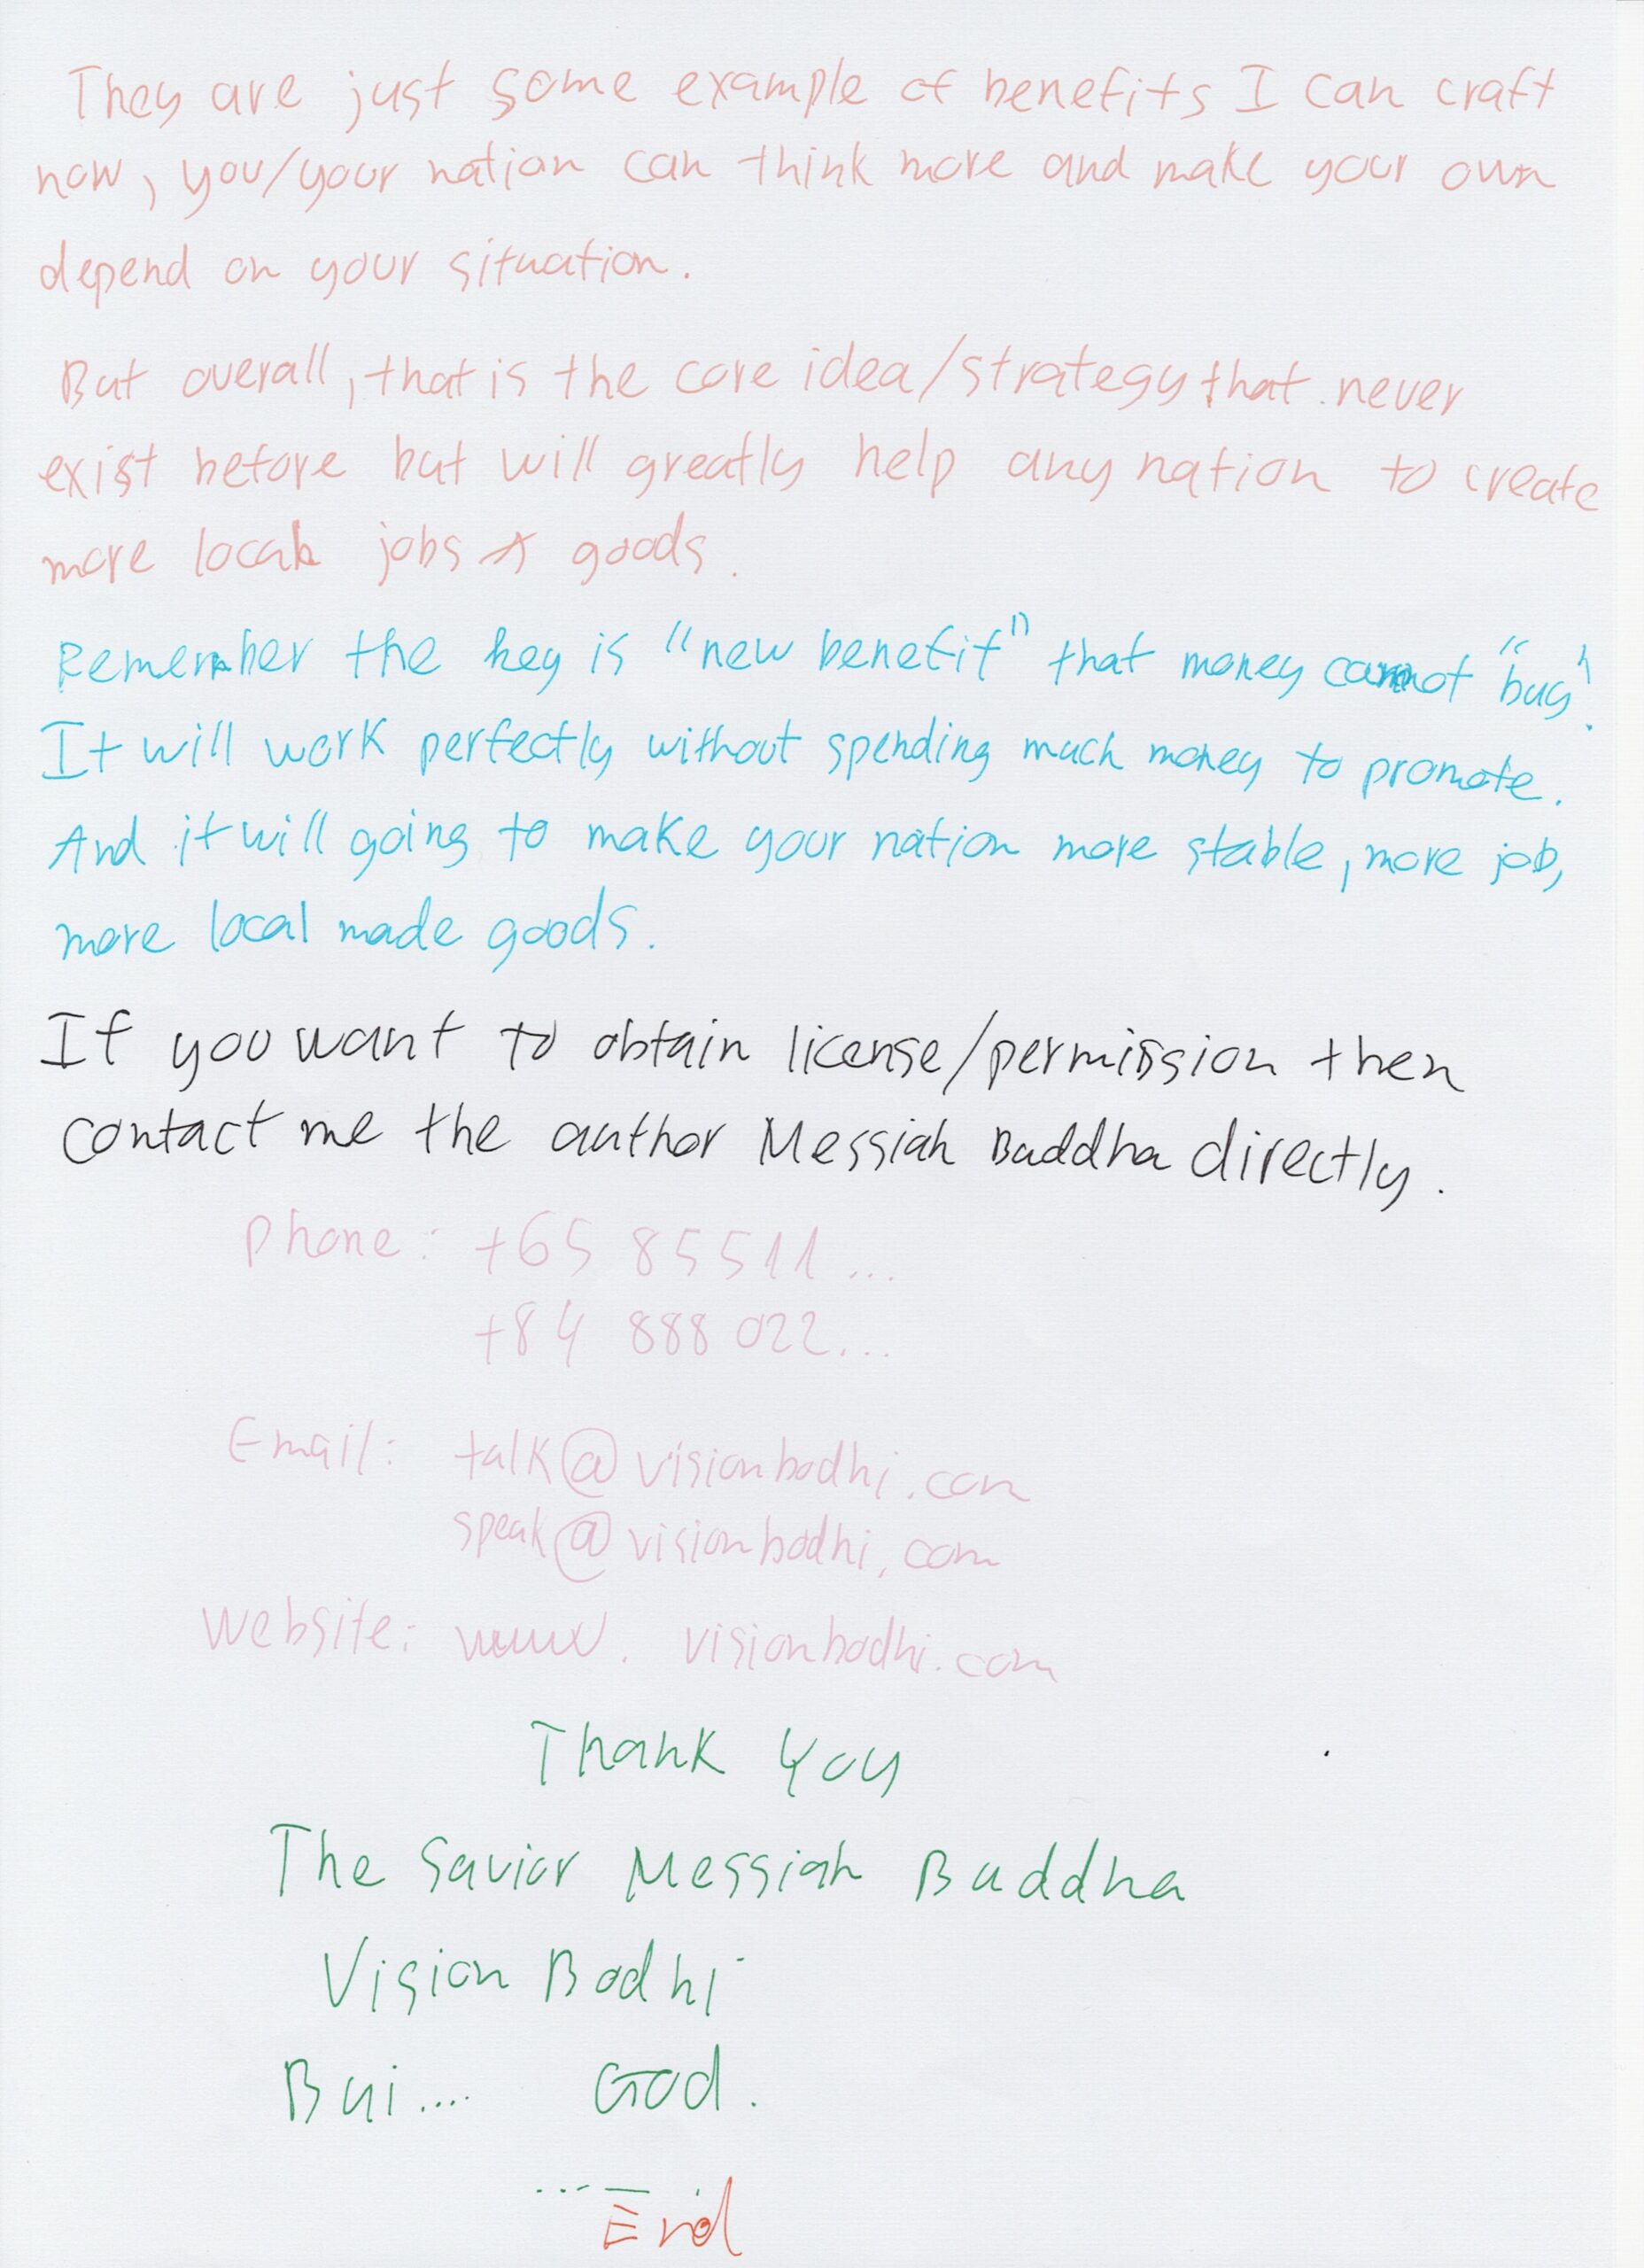 They are just some example of benefits I can craft
now, you/your nation can think more and make your own
depend on your situation.
But overall, that is the core idea/strategy that never
exist before but will greatly help any nation to create
more local jobs & goods.
Remember the key is "new benefit" that money cannot "buy".
It will work perfectly without spending much money to promote.
And it will going to make your nation more stable, more job,
more local made goods.
If you want to obtain license/permission then
contact me the author Messiah Buddha directly.
Phone: +65 85511...
+84 888 022...
Email: talk@visionbodhi.com
speak@visionbodhi.com
Website: www. visionbodhi.com
Thank You
The Savior Messiah Buddha
Vision Bodhi
Bui.... God.
End